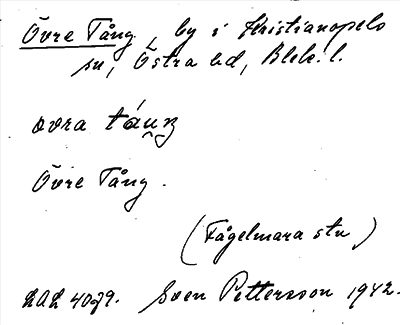 Övre Tång, by i Kristianopels
sn, Östra hd, Blek. l.
ovra táu̯ŋ
Övre Tång.
(Fågelmara stn)
LAL 4079. Sven Pettersson 1942.